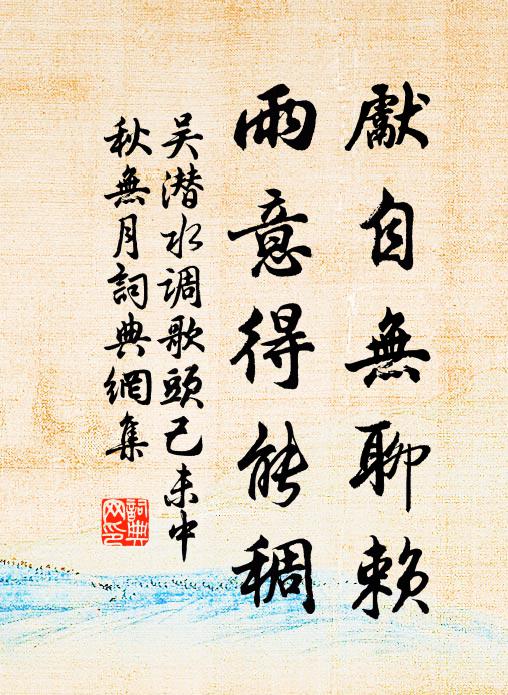 獻自無聊賴
雨意得能稠
吴潜水调歌頭己未中
秋無月詞典網集
詞典网印